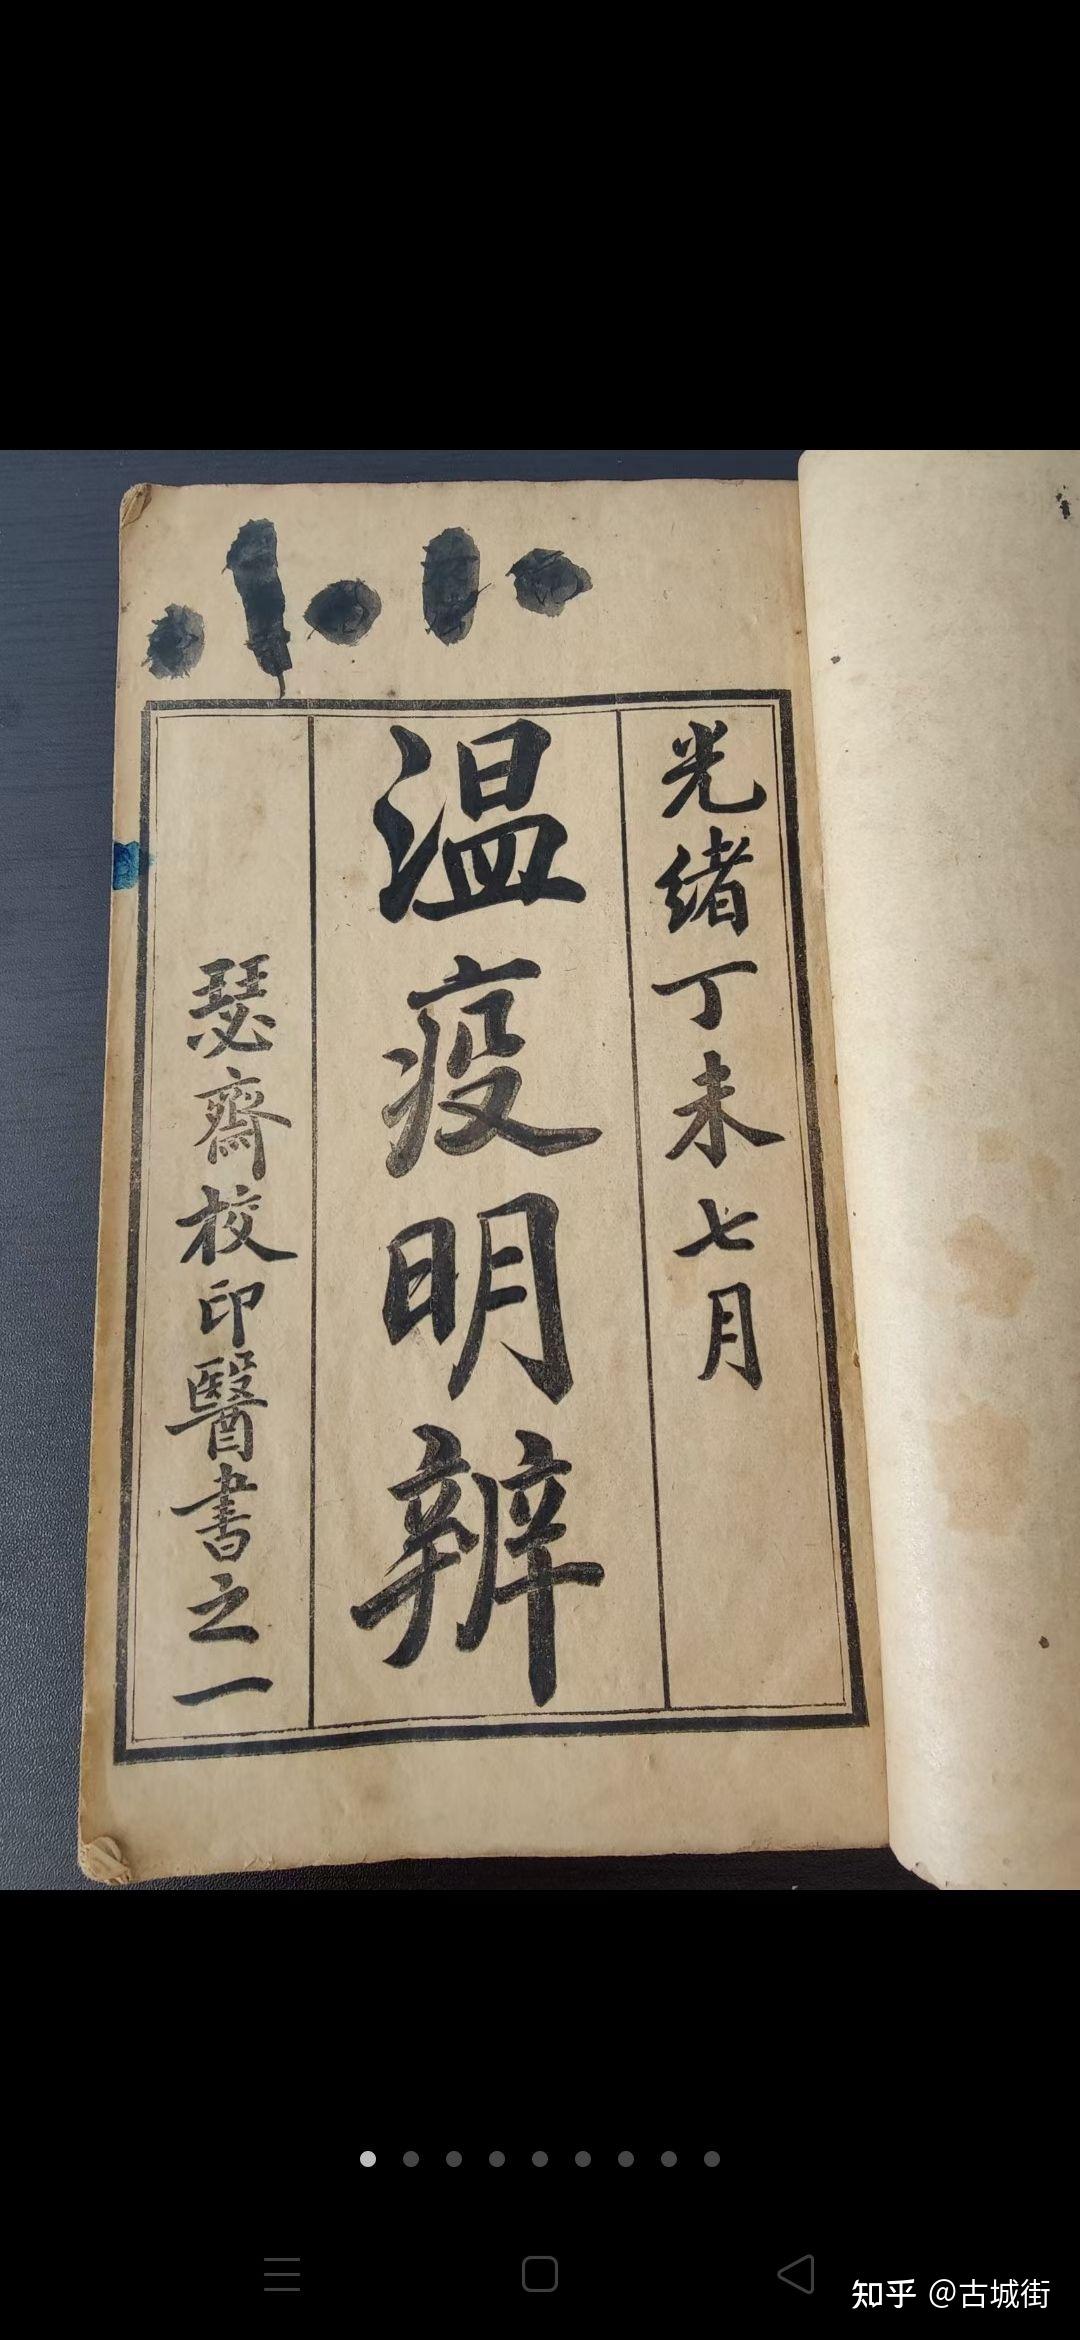 光緒丁未七月
温疫明辨
瑟齋校印醫書之一
知乎 @古城街